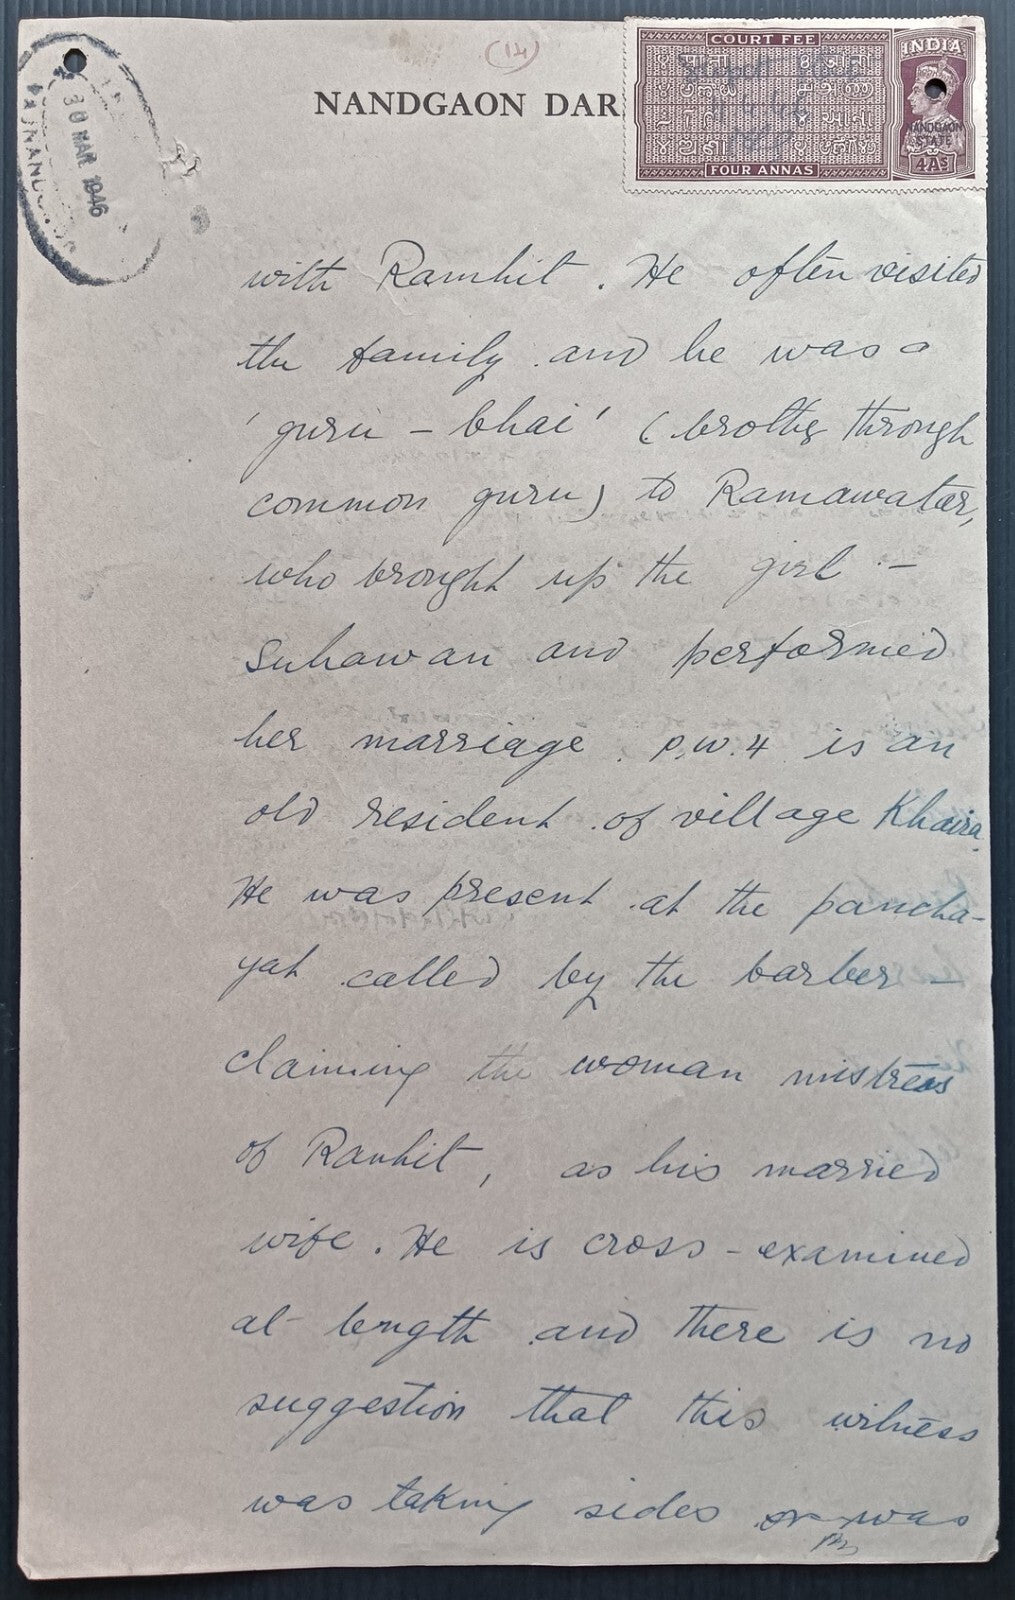 (14)
NANDGAON DAR
COURT FEE
INDIA
NANDGAON
STATE
4As
FOUR ANNAS
30 MAR 1946
with Ramhit. He often visited
the family and he was a
'guru - bhai' (brother through
common guru) to Ramawatar,
who brought up the girl -
Suhawan and performed
her marriage. P.W.4 is an
old resident of village Khaira.
He was present at the pancha-
yat called by the barber -
claiming the woman mistress
of Ramhit, as his married
wife. He is cross-examined
at length and there is no
suggestion that this witness
was taking sides or was